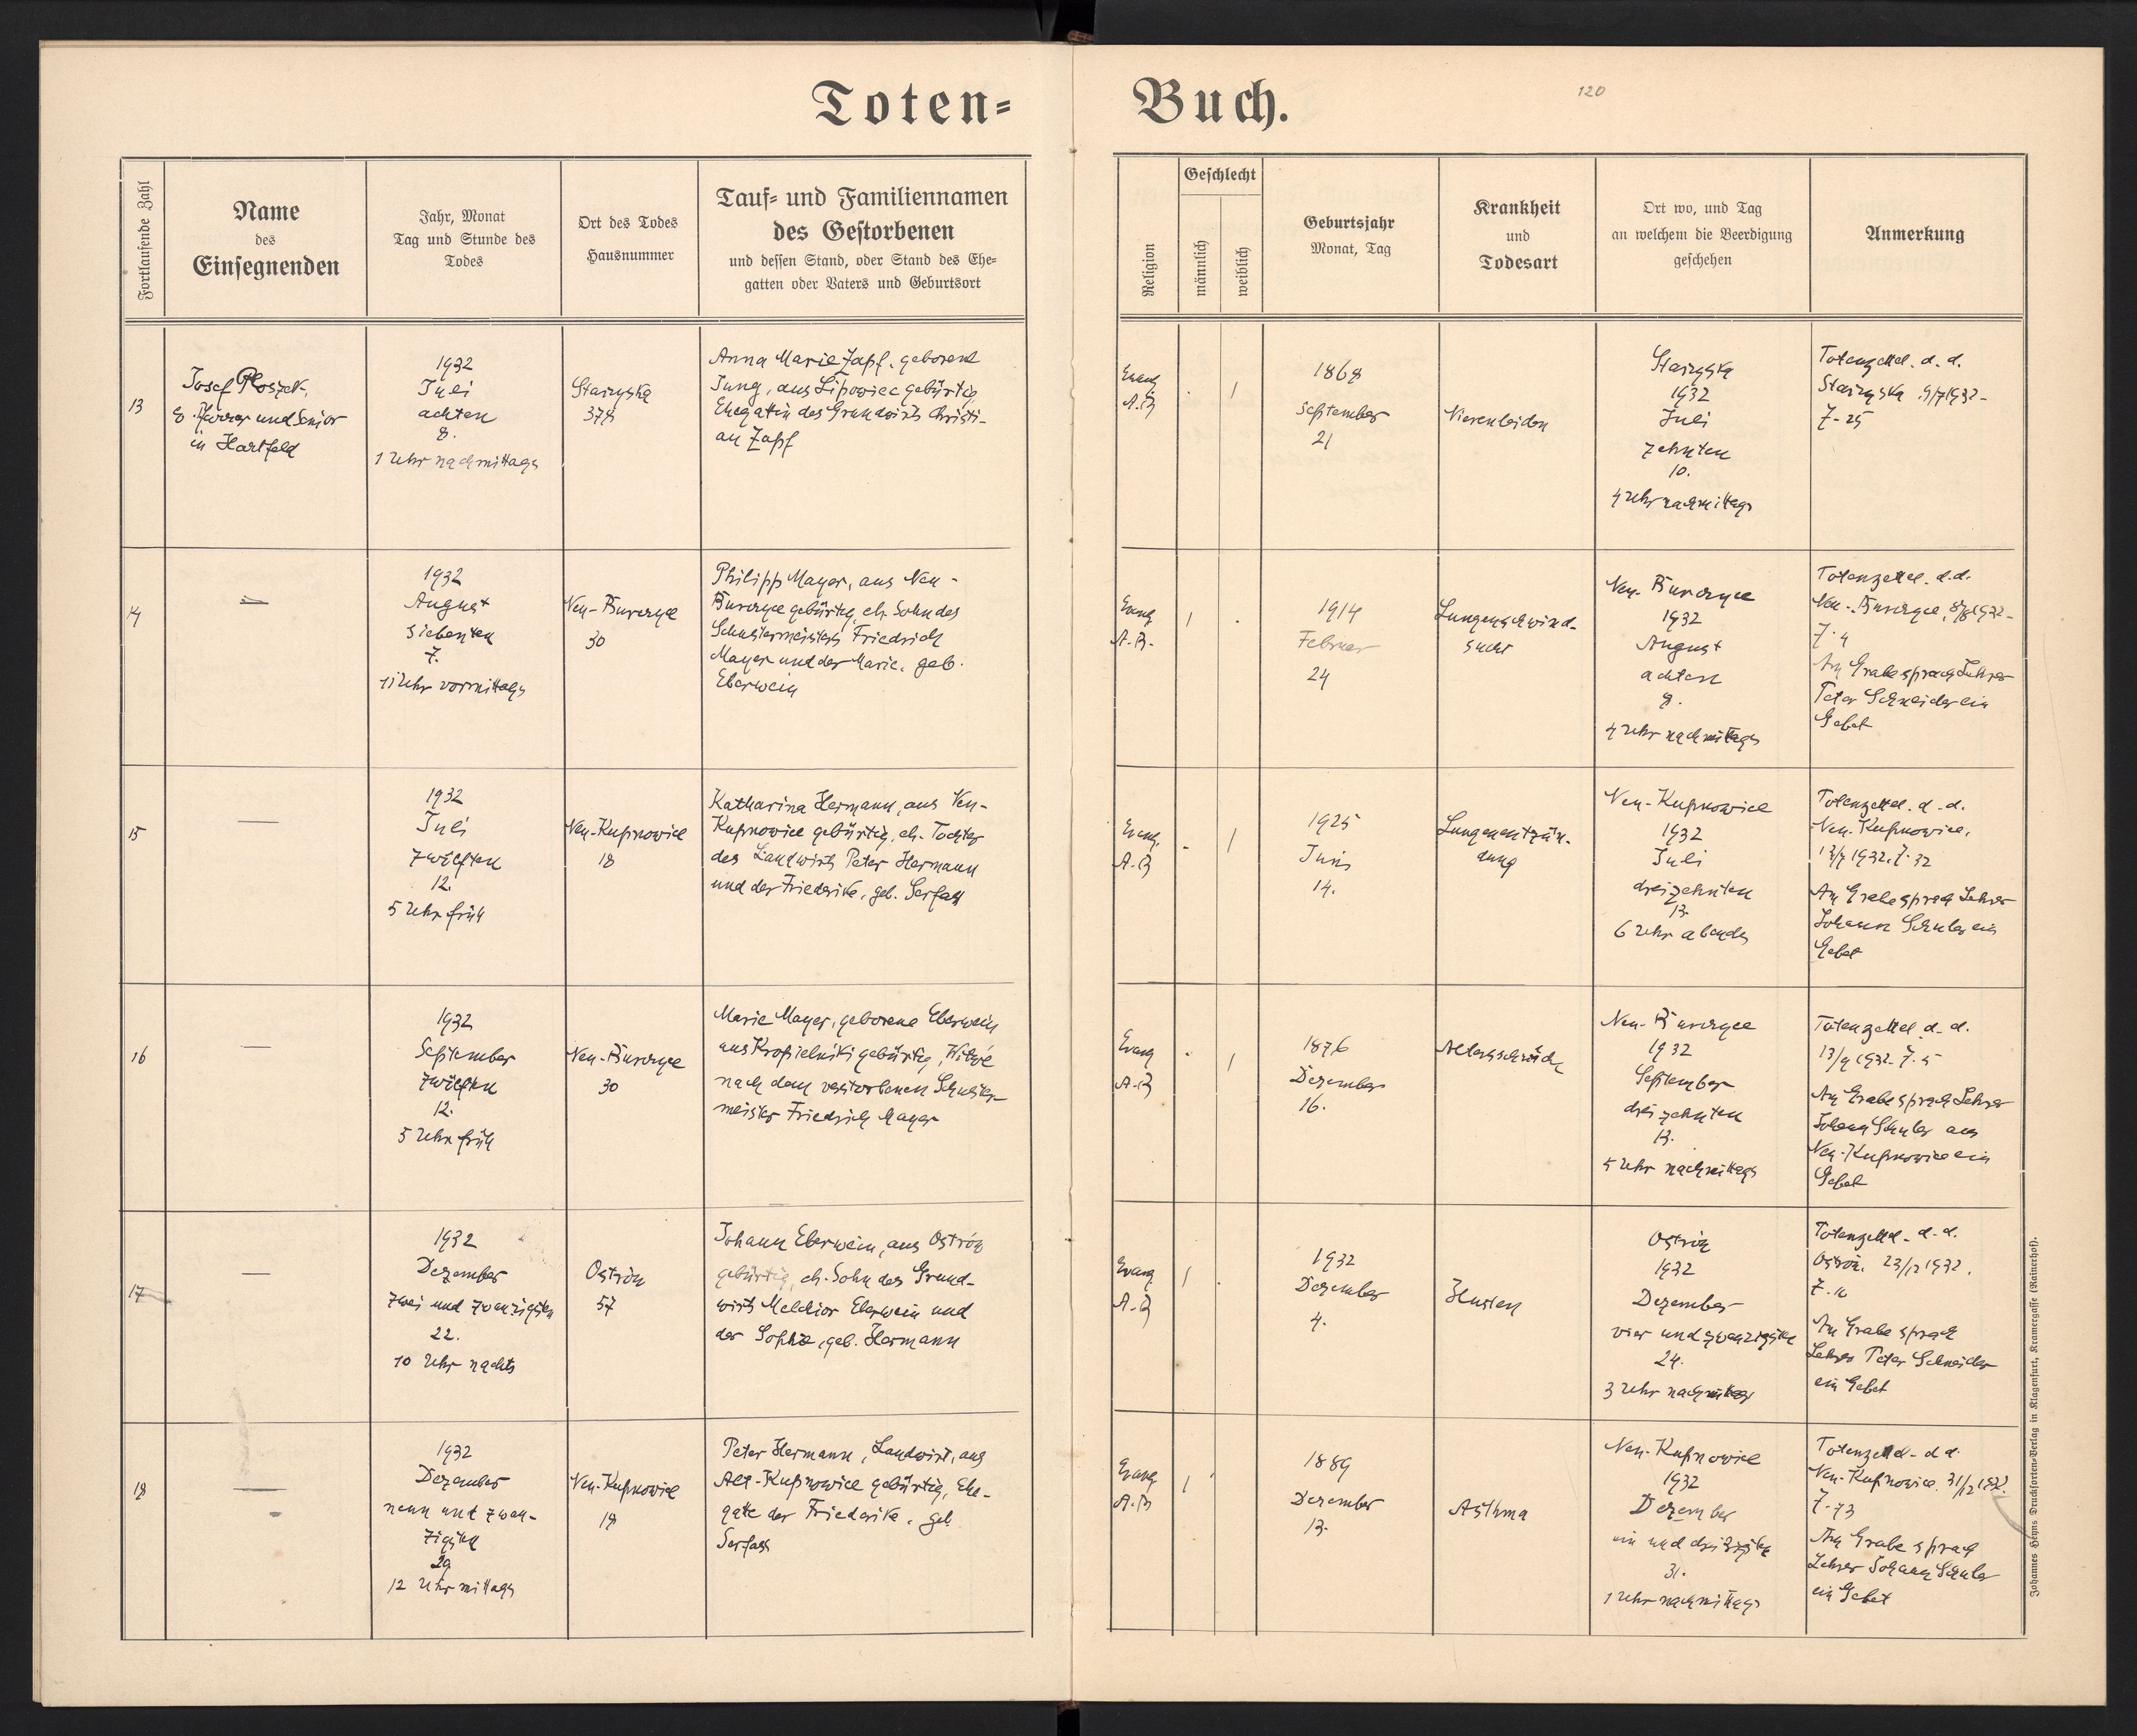 Toten-
Buch.
120
Fortlaufende Zahl
Name
des
Einsegnenden
Jahr, Monat
Tag und Stunde des
Todes
Ort des Todes
Hausnummer
Tauf- und Familiennamen
des Gestorbenen
und dessen Stand, oder Stand des Ehe-
gatten oder Vaters und Geburtsort
Religion
Geschlecht
männlich
weiblich
Geburtsjahr
Monat, Tag
Krankheit
und
Todesart
Ort wo, und Tag
an welchem die Beerdigung
geschehen
Anmerkung
13
Josef Ploszek,
e. Pfarrer und Senior
in Hartfeld
1932
Juli
achten
8.
1 Uhr nachmittags
Starzyska
378
Anna Marie Zapf, geborene
Jung, aus Lipowiec gebürtig,
Ehegattin des Grundwirts Christi-
an Zapf
Evang
A.B
1
1868
September
21
Nierenleiden
Starzyska
1932
Juli
zehnten
10.
4 Uhr nachmittags
Totenzettel. d. d.
Starzyska 9/7 1932-
Z-25
14
—
1932
August
siebenten
7.
11 Uhr vormittags
Neu-Burczyce
30
Philipp Mayer, aus Neu-
Burczyce gebürtig, eh. Sohn des
Schustermeisters Friedrich
Mayer und der Marie, geb.
Eberwein
Evang
A.B.
1
1914
Februar
24
Lungenschwind-
sucht
Neu-Burczyce
1932
August
achten
8.
4 Uhr nachmittags
Totenzettel. d.d.
Neu-Burczyce, 8/8 1932-
Z. 4
Am Grabe sprach Lehrer
Peter Schneider ein
Gebet
15
—
1932
Juli
zwölften
12.
5 Uhr früh
Neu-Kupnowice
18
Katharina Hermann, aus Neu-
Kupnowice gebürtig, eh. Tochter
des Landwirts Peter Hermann
und der Friederike, geb. Serfass
Evang.
A.B
1
1925
Juni
14.
Lungenentzün-
dung
Neu-Kupnowice
1932
Juli
dreizehnten
13.
6 Uhr abends
Totenzettel. d.d.
Neu-Kupnowice,
13/7 1932. Z. 32
Am Grabe sprach Lehrer
Johann Schuler ein
Gebet
16
—
1932
September
zwölften
12.
5 Uhr früh
Neu-Burczyce
30
Marie Mayer, geborene Eberwein
aus Kropielniki gebürtig, Witwe
nach dem verstorbenen Schuster-
meister Friedrich Mayer
Evang
A.B
1
1876
Dezember
16.
Altersschwäche
Neu-Burczyce
1932
September
dreizehnten
13.
5 Uhr nachmittags
Totenzettel d. d.
13/9 1932. Z. 5
Am Grabe sprach Lehrer
Johann Schuler aus
Neu-Kupnowice ein
Gebet
17
—
1932
Dezember
zwei und zwanzigsten
22.
10 Uhr nachts
Ostrów
57
Johann Eberwein, aus Ostrów
gebürtig, eh. Sohn des Grund-
wirts Melchior Eberwein und
der Sophie, geb. Hermann
Evang
A.B
1
1932
Dezember
4.
Husten
Ostrów
1932
Dezember
vier und zwanzigsten
24.
3 Uhr nachmittags
Totenzettel. d. d.
Ostrów. 23/12 1932.
Am Grabe sprach
Lehrer Peter Schneider
ein Gebet
18
—
1932
Dezember
neun und zwan-
zigsten
29
12 Uhr mittags
Neu-Kupnowice
18
Peter Hermann, Landwirt, aus
Alt-Kupnowice gebürtig, Ehe-
gatte der Friederike, geb.
Serfass
Evang
A.B
1
1889
Dezember
13.
Asthma
Neu-Kupnowice
1932
Dezember
ein und dreizigsten
31.
1 Uhr nachmittags
Totenzettel. d d
Neu-Kupnowice. 31/12 1932.
Z-73
Am Grabe sprach
Lehrer Johann Schuler
ein Gebet
Johannes Heyns Drucksorten-Verlag in Klagenfurt, Kramergasse (Rainerhof).